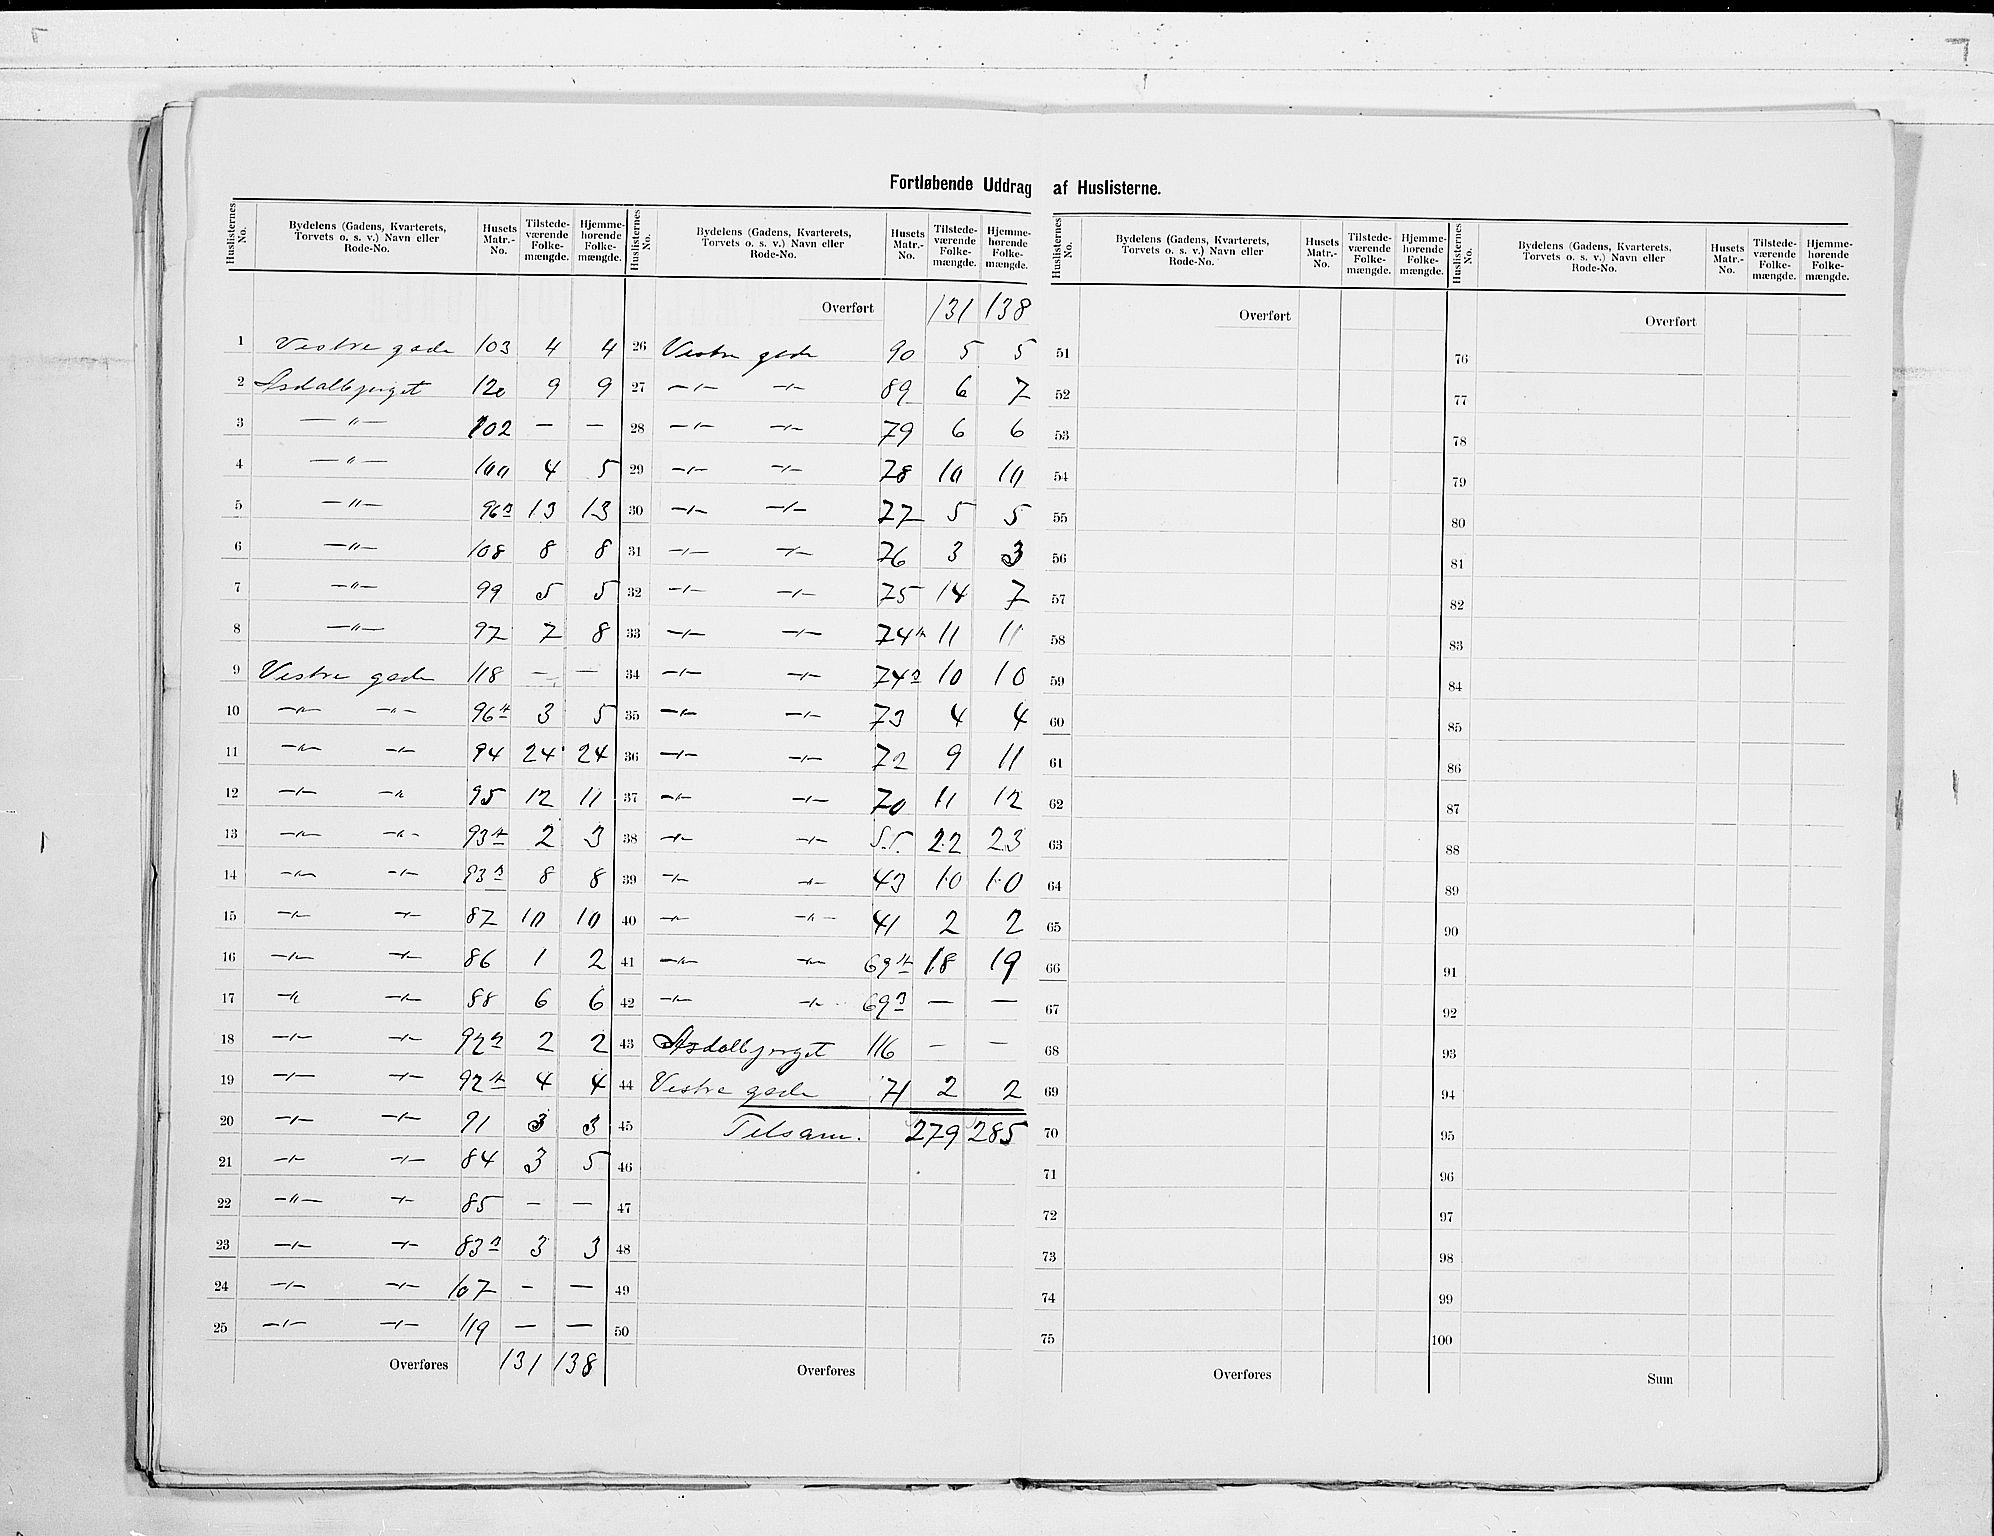 Fortløbende Uddrag af Huslisterne.
Huslisternes No. Bydelens (Gadens, Kvarterets, Torvets o. s. v.) Navn eller Rode-No. Husets Matr.-No. Tilstede-værende Folke-mængde. Hjemme-hørende Folke-mængde.
1 Vestre gade 103 4 4
2 Asdalbjerget 120 9 9
3 —"— 102 — —
4 —"— 100 4 5
5 —"— 96a 13 13
6 —"— 108 8 8
7 —"— 99 5 5
8 —"— 97 7 8
9 Vestre gade 118 — —
10 —"— —"— 96b 3 5
11 —"— —"— 94 24 24
12 —"— —"— 95 12 11
13 —"— —"— 93b 2 3
14 —"— —"— 93a 8 8
15 —"— —"— 87 10 10
16 —"— —"— 86 1 2
17 —"— —"— 88 6 6
18 —"— —"— 92a 2 2
19 —"— —"— 92b 4 4
20 —"— —"— 91 3 3
21 —"— —"— 84 3 5
22 —"— —"— 85 — —
23 —"— —"— 83a 3 3
24 —"— —"— 107 — —
25 —"— —"— 119 — —
Overføres 131 138
Huslisternes No. Bydelens (Gadens, Kvarterets, Torvets o. s. v.) Navn eller Rode-No. Husets Matr.-No. Tilstede-værende Folke-mængde. Hjemme-hørende Folke-mængde.
Overført 131 138
26 Vestre gade 90 5 5
27 —"— —"— 89 6 7
28 —"— —"— 79 6 6
29 —"— —"— 78 10 10
30 —"— —"— 77 5 5
31 —"— —"— 76 3 3
32 —"— —"— 75 14 7
33 —"— —"— 74b 11 11
34 —"— —"— 74a 10 10
35 —"— —"— 73 4 4
36 —"— —"— 72 9 11
37 —"— —"— 70 11 12
38 —"— —"— 22 23
39 —"— —"— 43 10 10
40 —"— —"— 41 2 2
41 —"— —"— 69b 18 19
42 —"— —"— 69a — —
43 Asdalbjerget 116 — —
44 Vestre gade 71 2 2
45 Tilsam. 279 285
46
47
48
49
50
Overføres
Huslisternes No. Bydelens (Gadens, Kvarterets, Torvets o. s. v.) Navn eller Rode-No. Husets Matr.-No. Tilstede-værende Folke-mængde. Hjemme-hørende Folke-mængde.
Overført
51
52
53
54
55
56
57
58
59
60
61
62
63
64
65
66
67
68
69
70
71
72
73
74
75
Overføres
Huslisternes No. Bydelens (Gadens, Kvarterets, Torvets o. s. v.) Navn eller Rode-No. Husets Matr.-No. Tilstede-værende Folke-mængde. Hjemme-hørende Folke-mængde.
Overført
76
77
78
79
80
81
82
83
84
85
86
87
88
89
90
91
92
93
94
95
96
97
98
99
100
Sum